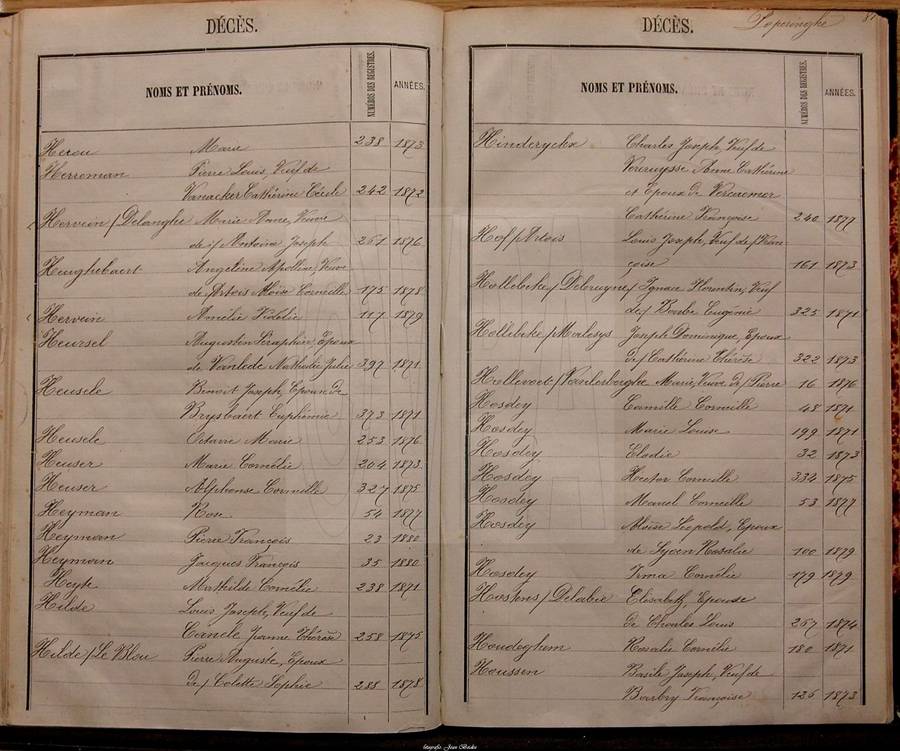 DÉCÈS.
NOMS ET PRÉNOMS. NUMÉROS DES REGISTRES. ANNÉES.
Herou Marie 238 1873
Herreman Pierre Louis, Veuf de
Vanacker Cathérine Cécile 242 1872
Hervein / Delanghe Marie Anne, Veuve
de / Antoine Joseph 251 1876
Heughebaert Angeline Apolline, Veuve
de Artois Aloïse Corneille 175 1878
Hervein Amélie 117 1879
Heursel Augustin Séraphin, Epoux
de Nathalie Julie 397 1871
Heusele Benoit Joseph, Epoux de
Brysbaert Euphémie 373 1871
Heusele Octavie Marie 253 1876
Heuser Marie Cornélie 204 1873
Heuser Alphonse Corneille 327 1875
Heyman Rose 54 1877
Heyman Pierre François 23 1880
Heyman Jacques François 35 1880
Heyte Mathilde Cornélie 238 1871
Hilde Louis Joseph, Veuf de
Canele Jeanne Thérèse 258 1875
Hilde / Le Blou Pierre Auguste, Epoux
de / Colette Sophie 288 1878
DÉCÈS. Poperinghe
NOMS ET PRÉNOMS. NUMÉROS DES REGISTRES. ANNÉES.
Hinderyckx Charles Joseph, Veuf de
Vereruysse Anne Cathérine
et Epoux de
Cathérine Françoise 240 1877
Hof / Artois Louis Joseph, Veuf de / Fran-
çoise 161 1873
Hollebeke / Debruyne / Ignace Florentin, Veuf
de / Barbe Eugénie 325 1871
Hollebeke / Malesys Joseph Dominique, Epoux
de / Cathérine Thérèse 322 1873
Hollevoet / Vanlerberghe Marie, Veuve de / Pierre 16 1876
Hosdey Camille Corneille 48 1871
Hosdey Marie Louise 199 1871
Hosdey Elodie 32 1873
Hosdey Hector Corneille 334 1875
Hosdey Marcel Corneille 53 1877
Hosdey Léopold, Epoux
de Syoen Rosalie 100 1879
Hosdey Irma Cornélie 179 1879
Hostens / Delabie Elisabeth, Epouse
de Charles Louis 267 1874
Houdeghem Rosalie Cornélie 180 1871
Houssen Basile Joseph, Veuf de
Barbry Françoise 126 1873